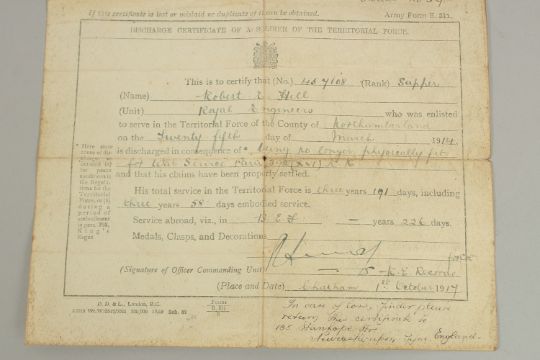 If this certificate is lost or mislaid no duplicate of it can be obtained. Army Form E. 511.
DISCHARGE CERTIFICATE OF A SOLDIER OF THE TERRITORIAL FORCE.
This is to certify that (No.) 457108 (Rank) Sapper
(Name) Robert L. Hill
(Unit) Royal Engineers who was enlisted
to serve in Territorial Force of the County of Northumberland
on the Twenty fifth day of March 1914
* is discharged in consequence of being no longer physically fit
for War Service Para 392 (XVI) K.R.
and that his claims have been properly settled.
His total service in the Territorial Force is three years 191 days, including
three years 58 days embodied service.
Service abroad, viz., in B E F — years 226 days.
Medals, Clasps, and Decorations
(Signature of Officer Commanding Unit) R.E. Records
(Place and Date) Chatham 1st October 1917
* Here state
King's
D. D. & L., London, E.C.
Forms
In case of loss, finder please
return this certificate to
135 Stanhope Str
Newcastle upon Tyne England.